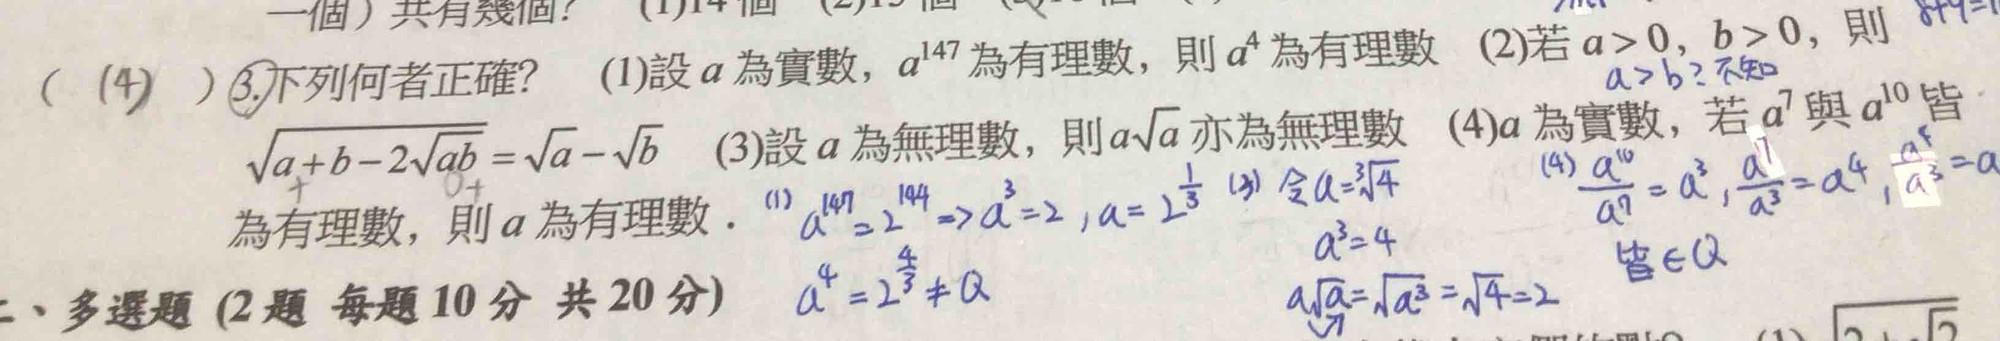 一個）共有幾個？ (1)14個
( (4) ) 3.下列何者正確？ (1)設 a 為實數，a^147 為有理數，則 a^4 為有理數 (2)若 a > 0，b > 0，則
a > b？不知
√(a + b − 2√ab) = √a − √b (3)設 a 為無理數，則 a√a 亦為無理數 (4)a 為實數，若 a^7 與 a^10 皆
+ 0+
為有理數，則 a 為有理數．
(1) a^147 = 2^144 => a^3 = 2，a = 2^(1/3)
a^4 = 2^(4/3) ≠ Q
(3) 令 a = ∛4
a^3 = 4
a√a = √a^3 = √4 = 2
(4) a^10/a^7 = a^3，a^7/a^3 = a^4，a^4/a^3 = a
皆 ∈ Q
二、多選題 (2 題 每題 10 分 共 20 分)